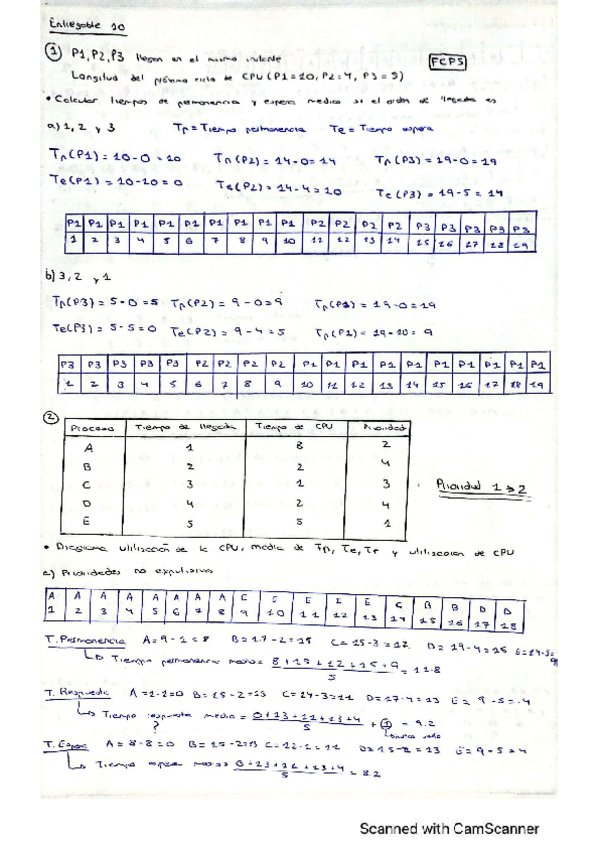 Entregable 10
① P1, P2, P3 llegan en el mismo instante FCFS
Longitud del próximo ciclo de CPU (P1=10, P2=4, P3=5)
• Calcular tiempos de permanencia y espera medios si el orden de llegada es
a) 1, 2 y 3 Tp = Tiempo permanencia Te = Tiempo espera
Tp(P1) = 10-0 = 10 Tp(P2) = 14-0 = 14 Tp(P3) = 19-0 = 19
Te(P1) = 10-10 = 0 Te(P2) = 14-4 = 10 Te(P3) = 19-5 = 14
P1 P1 P1 P1 P1 P1 P1 P1 P1 P1 P2 P2 P2 P2 P3 P3 P3 P3 P3
1 2 3 4 5 6 7 8 9 10 11 12 13 14 15 16 17 18 19
b) 3, 2 y 1
Tp(P3) = 5-0 = 5 Tp(P2) = 9-0 = 9 Tp(P1) = 19-0 = 19
Te(P3) = 5-5 = 0 Te(P2) = 9-4 = 5 Tp(P1) = 19-10 = 9
P3 P3 P3 P3 P3 P2 P2 P2 P2 P1 P1 P1 P1 P1 P1 P1 P1 P1 P1
1 2 3 4 5 6 7 8 9 10 11 12 13 14 15 16 17 18 19
②
Proceso Tiempo de llegada Tiempo de CPU Prioridad
A 1 8 2
B 2 2 4
C 3 1 3
D 4 2 4
E 5 5 1
Prioridad 1 > 2
• Diagrama utilización de la CPU, media de Tp, Te, Tr y utilizacion de CPU
a) Prioridades no expulsivas
A A A A A A A A E E E E E C B B D D
1 2 3 4 5 6 7 8 9 10 11 12 13 14 15 16 17 18
T. Permanencia A = 9-1 = 8 B = 17-2 = 15 C = 15-3 = 12 D = 19-4 = 15 E = 14-5 = 9
Tiempo permanencia medio = 8+15+12+15+9 / 5 = 11.8
T. Respuesta A = 1-1 = 0 B = 15-2 = 13 C = 14-3 = 11 D = 17-4 = 13 E = 9-5 = 4
Tiempo respuesta medio = 0+13+11+13+4 / 5 + ① = 9.2
?
T. Espera A = 8-8 = 0 B = 15-2 = 13 C = 12-1 = 11 D = 15-2 = 13 E = 9-5 = 4
Tiempo espera medio = 0+13+11+13+4 / 5 = 8.2
Scanned with CamScanner